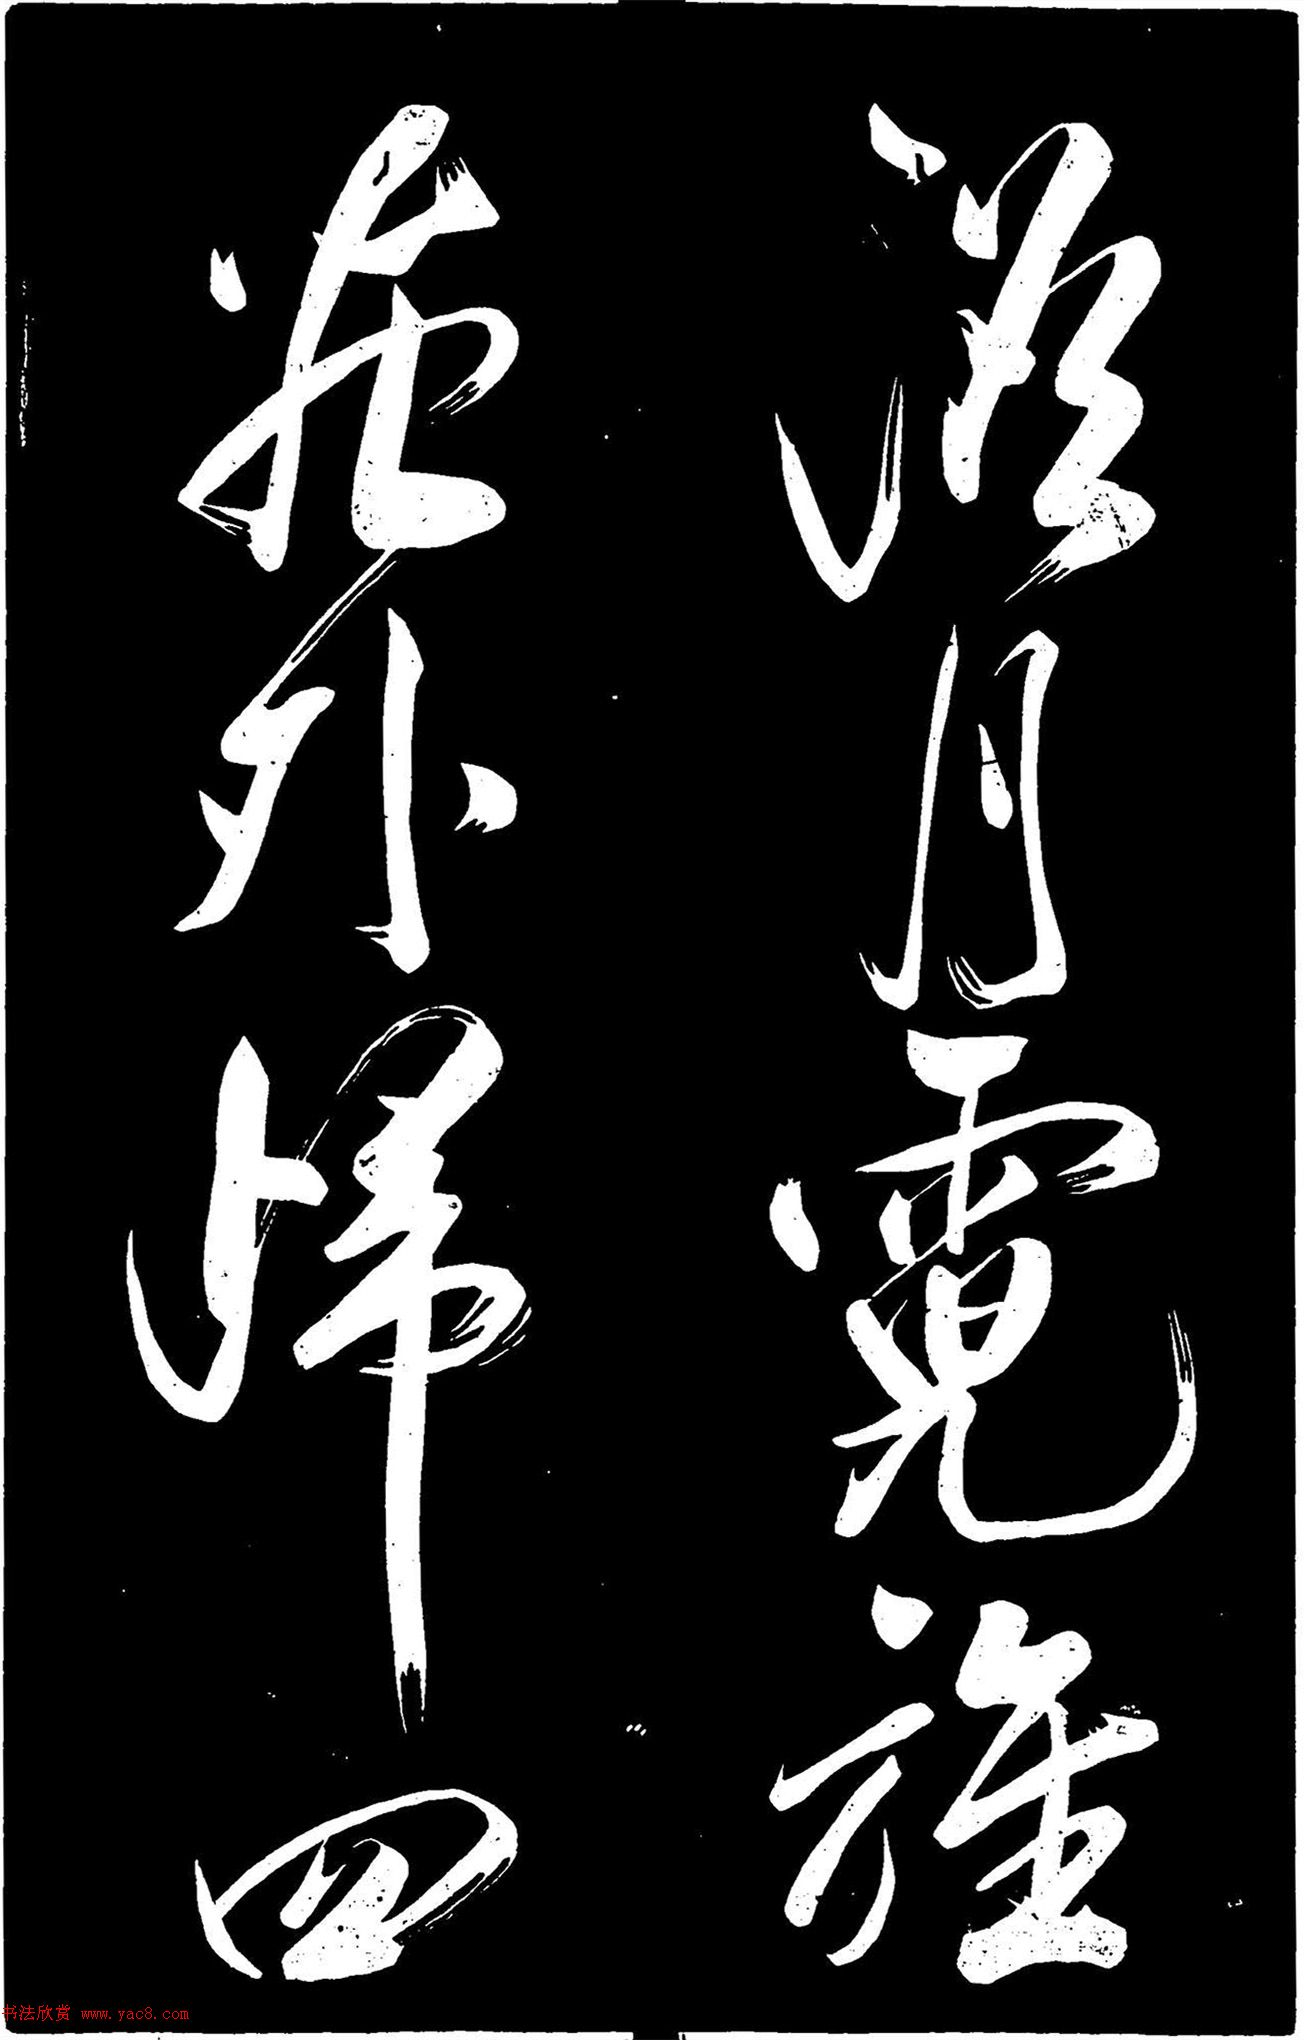 月霓旌
外歸四
书法欣赏 www.yac8.com